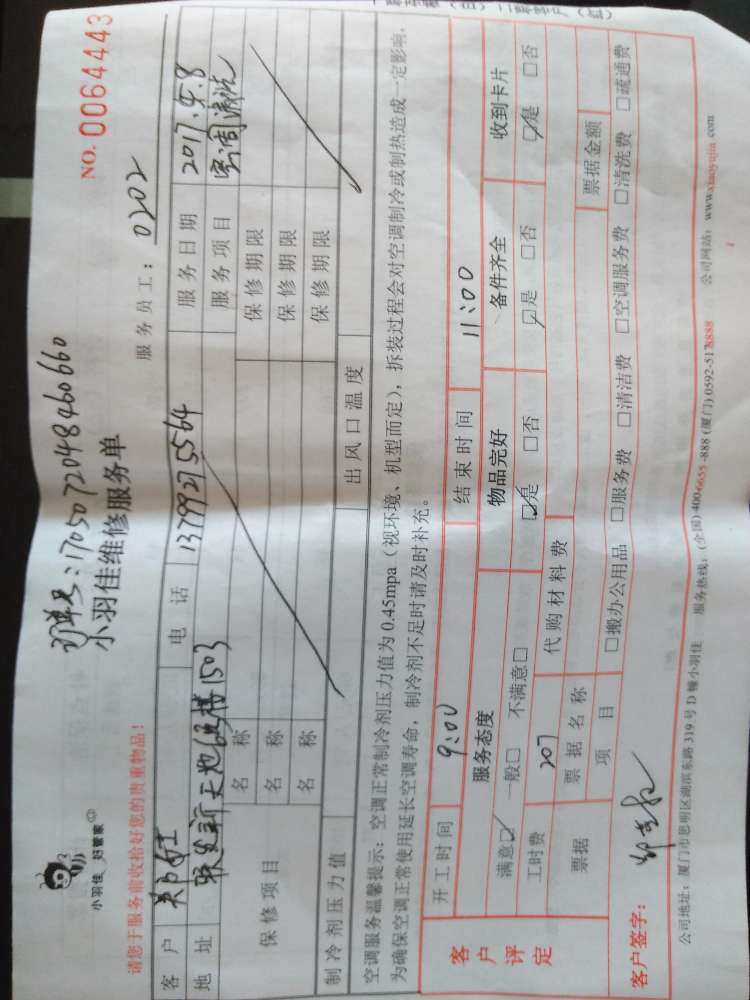 小羽佳 好管家
NO. 0064443
订单号：1705072048460660
小羽佳维修服务单
请您于服务前收拾好您的贵重物品！
服务员工： 0202
客户 电话 13799275564 服务日期 2017.5.8
地址 联发新天地6号楼1503 服务项目
保修项目
名称 保修期限
名称 保修期限
名称 保修期限
制冷剂压力值 出风口温度
空调服务温馨提示：空调正常制冷剂压力值为 0.45mpa（视环境、机型而定），拆装过程会对空调制冷或制热造成一定影响，
为确保空调正常使用延长空调寿命，制冷剂不足时请及时补充。
客户评定
开工时间 9:00 结束时间 11:00
服务态度 物品完好 备件齐全 收到卡片
满意☑ 一般□ 不满意□ ☑是 □否 ☑是 □否 ☑是 □否
工时费 207 代购材料费
票据 票据名称 票据金额
项目 □搬办公用品 □服务费 □清洁费 □空调服务费 □清洗费 □疏通费
客户签字：
公司地址：厦门市思明区湖滨东路 319 号 D 幢小羽佳 服务热线：(全国)400-6655-888 (厦门)0592-5178888 公司网站：www.xiaoyujia.com